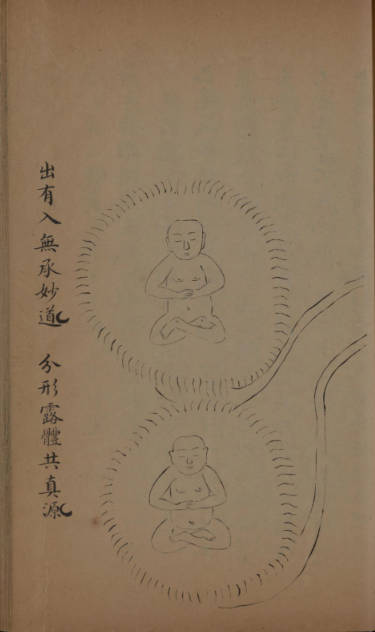 出有入無承妙道 分形露體共真源